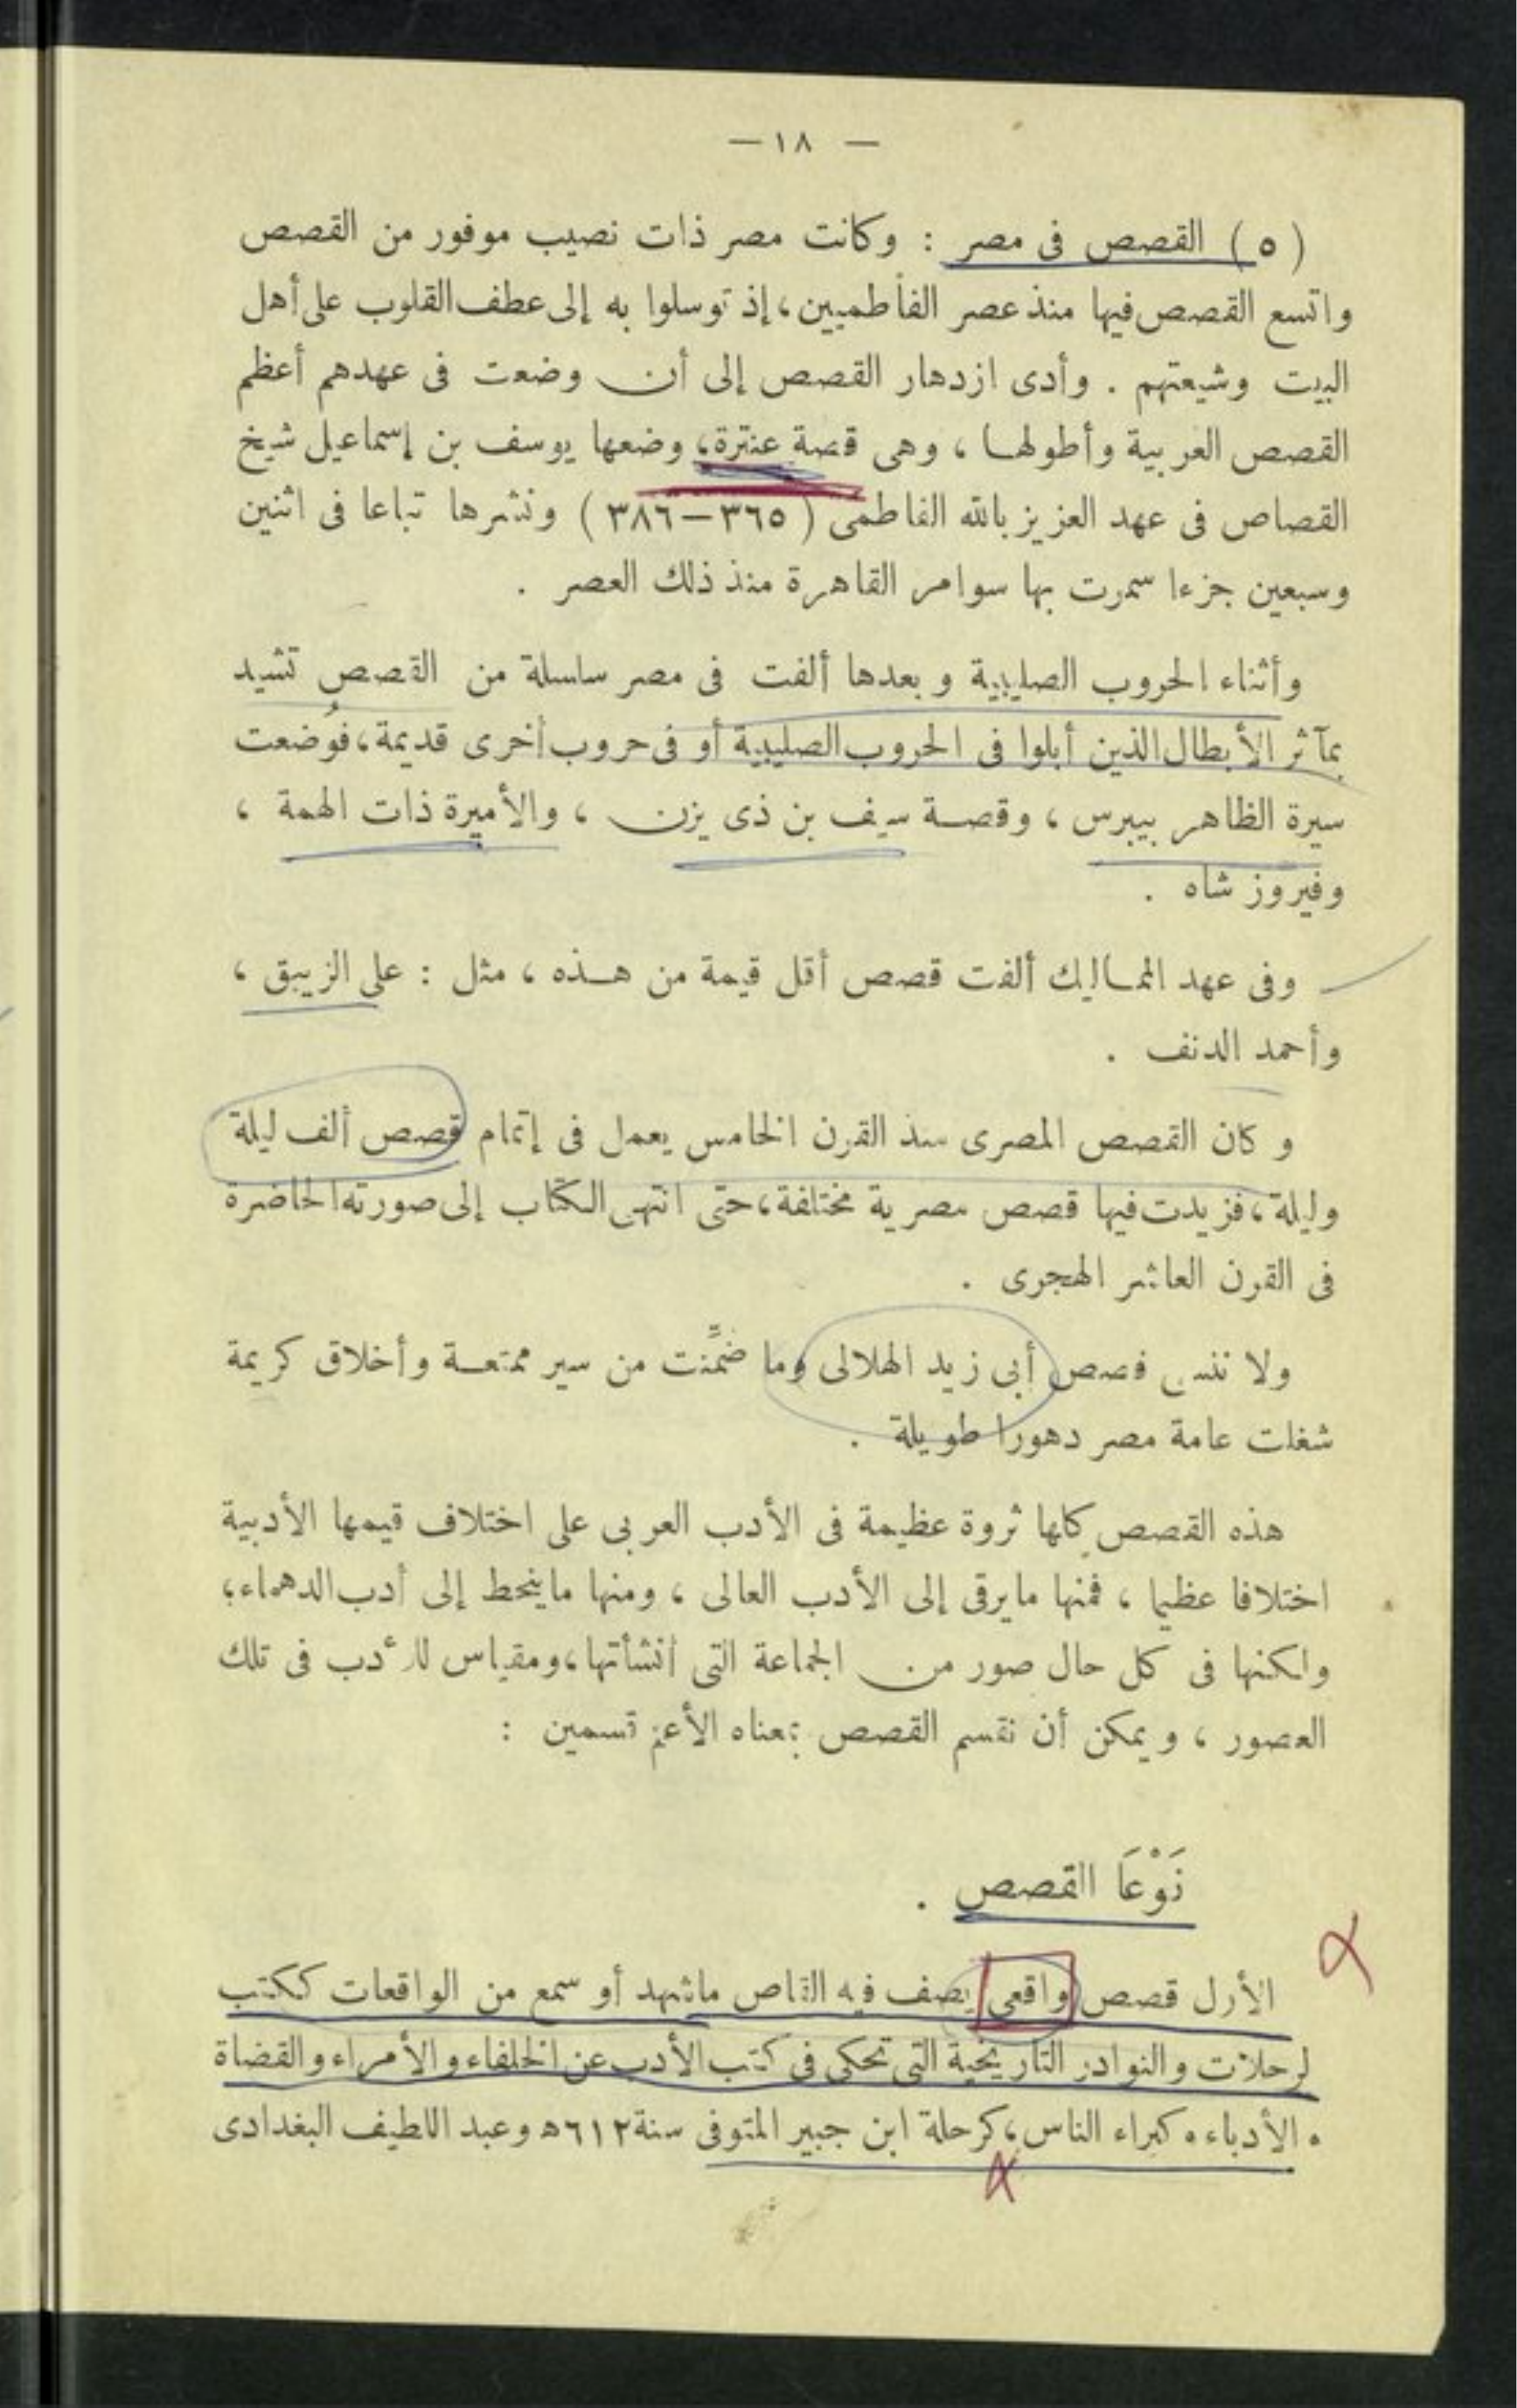 — ١٨ —
( ٥ ) القصص فى مصر : وكانت مصر ذات نصيب موفور من القصص
واتسع القصص فيها منذ عصر الفاطميين ، إذ توسلوا به إلى عطف القلوب على أهل
البيت وشيعتهم . وأدى ازدهار القصص إلى أن وضعت فى عهدهم أعظم
القصص العربية وأطولها ، وهى قصة عنترة ، وضعها يوسف بن إسماعيل شيخ
القصاص فى عهد العزيز بالله الفاطمى ( ٣٦٥ – ٣٨٦ ) ونشرها تباعا فى اثنين
وسبعين جزءا سمرت بها سوامر القاهرة منذ ذلك العصر .
وأثناء الحروب الصليبية وبعدها ألفت فى مصر سلسلة من القصص تشيد
بمآثر الأبطال الذين أبلوا فى الحروب الصليبية أو فى حروب أخرى قديمة ، فوُضعت
سيرة الظاهر بيبرس ، وقصة سيف بن ذى يزن ، والأميرة ذات الهمة ،
وفيروز شاه .
وفى عهد المماليك ألفت قصص أقل قيمة من هذه ، مثل : على الزيبق ،
وأحمد الدنف .
وكان القصص المصرى منذ القرن الخامس يعمل فى إتمام قصص ألف ليلة
وليلة ، فزيدت فيها قصص مصرية مختلفة ، حتى انتهى الكتاب إلى صورته الحاضرة
فى القرن العاشر الهجرى .
ولا ننسى قصص أبى زيد الهلالى وما ضمِّنت من سير ممتعة وأخلاق كريمة
شغلت عامة مصر دهورا طويلة .
هذه القصص كلها ثروة عظيمة فى الأدب العربى على اختلاف قيمها الأدبية
اختلافا عظيما ، فمنها ما يرقى إلى الأدب العالى ، ومنها ما ينحط إلى أدب الدهماء ؛
ولكنها فى كل حال صور من الجماعة التى أنشأتها ، ومقياس للأدب فى تلك
العصور ، ويمكن أن نقسم القصص بمعناه الأعم قسمين :
نَوْعَا القصص .
الأول قصص واقعى يصف فيه القاص ما شهد أو سمع من الواقعات ككتب
لرحلات والنوادر التاريخية التى تحكى فى كتب الأدب عن الخلفاء والأمراء والقضاة
والأدباء وكبراء الناس ، كرحلة ابن جبير المتوفى سنة ٦١٢ ه وعبد اللطيف البغدادى